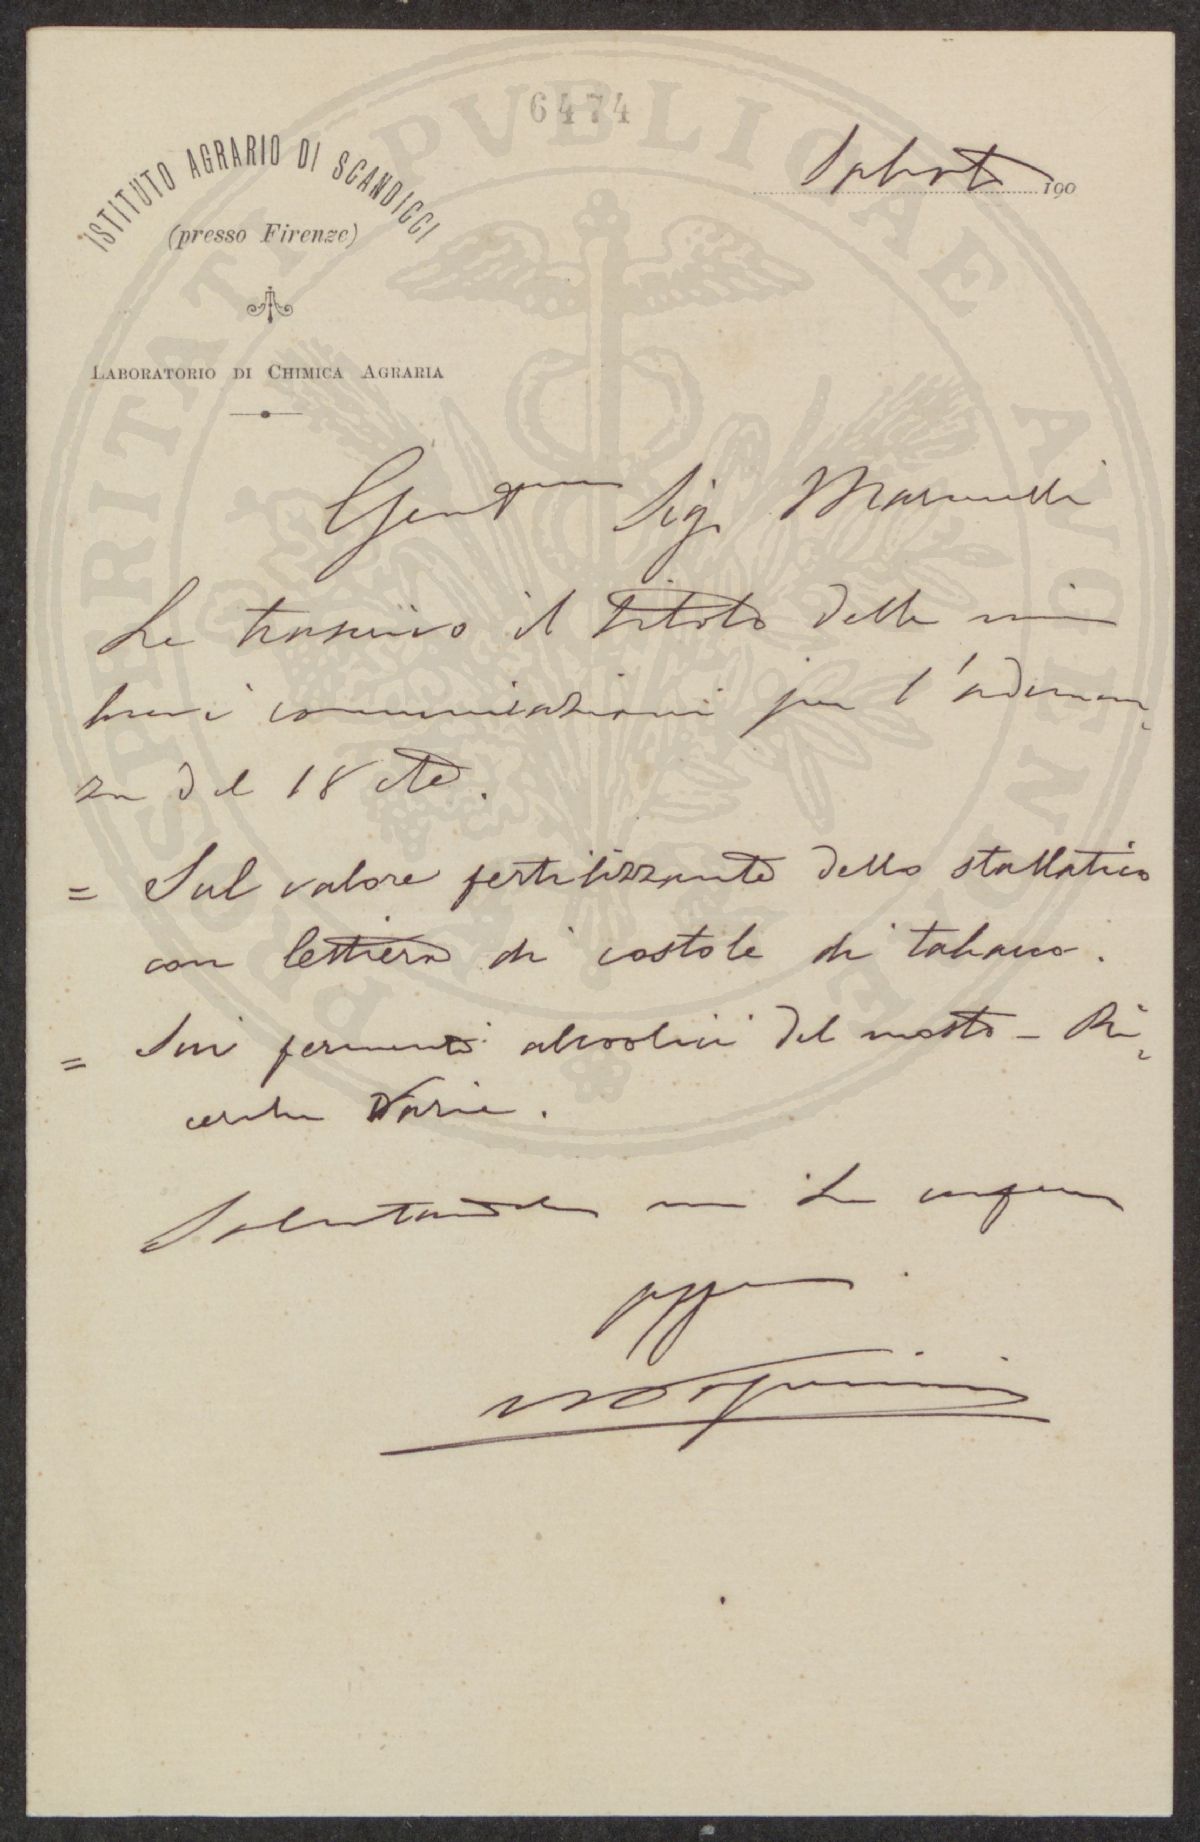 6474
ISTITUTO AGRARIO DI SCANDICCI
(presso Firenze)
LABORATORIO DI CHIMICA AGRARIA
Sabato 190
Sig.
Le trascrivo il titolo delle mie
brevi comunicazioni per l'adunan-
za del 18 cte.
= Sul valore fertilizzante dello stallatico
con lettiera di costole di tabacco.
= Sui fermenti alcoolici del mosto - Ri-
cerche Varie.
Salutandola mi
PROSPERITATI PVBLICAE AVGENDAE